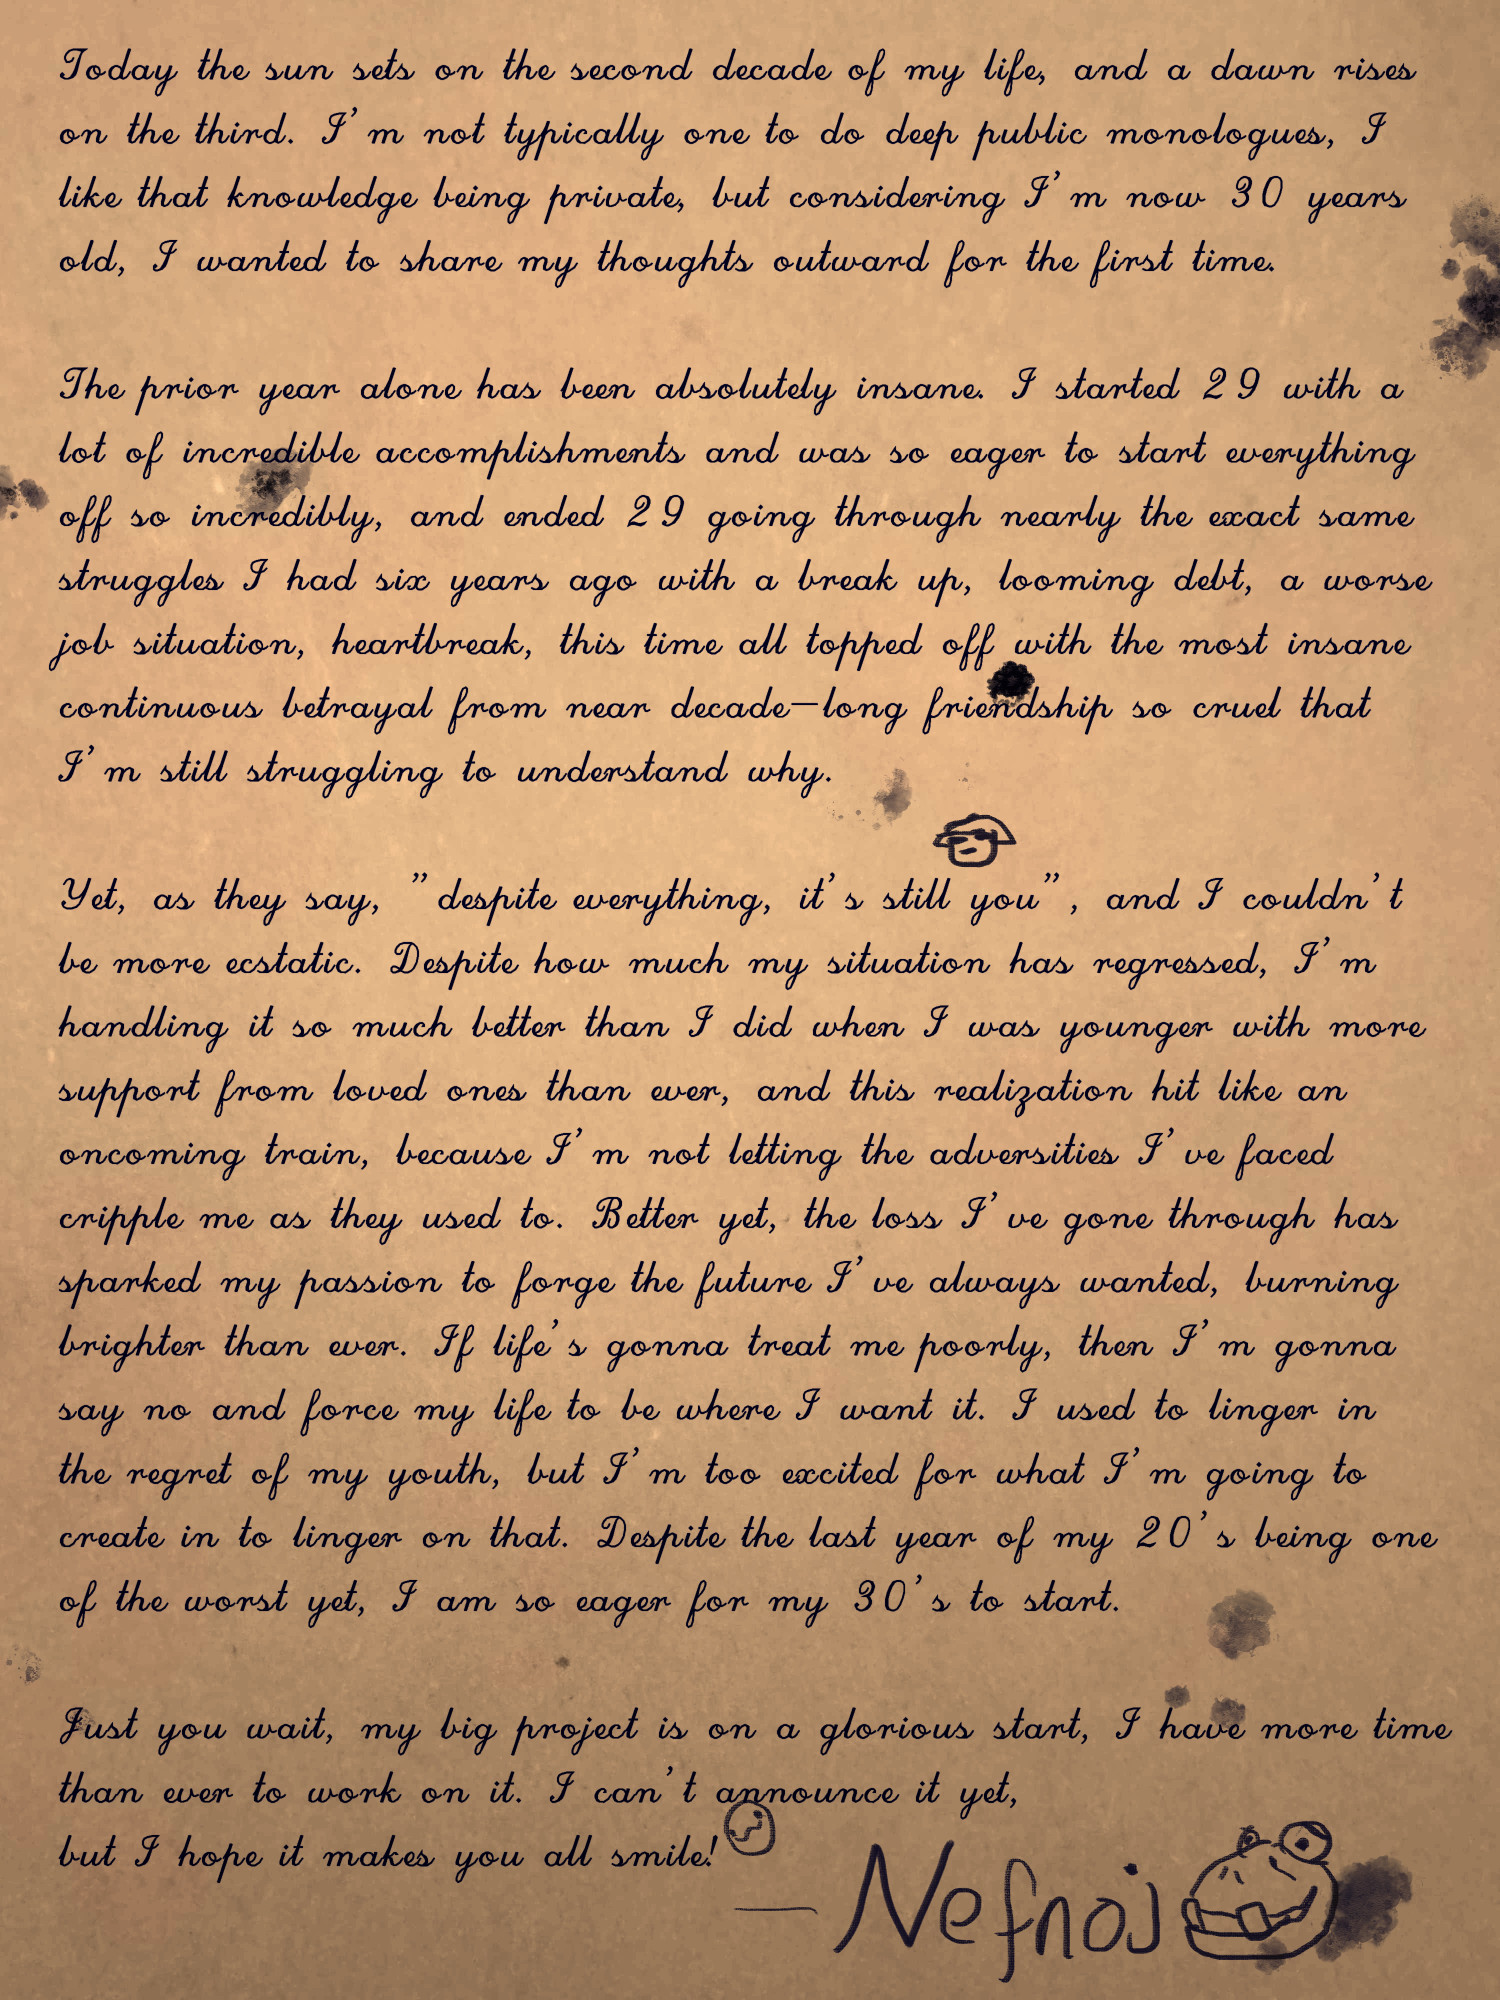 Today the sun sets on the second decade of my life, and a dawn rises
on the third. I'm not typically one to do deep public monologues, I
like that knowledge being private, but considering I'm now 30 years
old, I wanted to share my thoughts outward for the first time.
The prior year alone has been absolutely insane. I started 29 with a
lot of incredible accomplishments and was so eager to start everything
off so incredibly, and ended 29 going through nearly the exact same
struggles I had six years ago with a break up, looming debt, a worse
job situation, heartbreak, this time all topped off with the most insane
continuous betrayal from near decade-long friendship so cruel that
I'm still struggling to understand why.
Yet, as they say, "despite everything, it's still you", and I couldn't
be more ecstatic. Despite how much my situation has regressed, I'm
handling it so much better than I did when I was younger with more
support from loved ones than ever, and this realization hit like an
oncoming train, because I'm not letting the adversities I've faced
cripple me as they used to. Better yet, the loss I've gone through has
sparked my passion to forge the future I've always wanted, burning
brighter than ever. If life's gonna treat me poorly, then I'm gonna
say no and force my life to be where I want it. I used to linger in
the regret of my youth, but I'm too excited for what I'm going to
create in to linger on that. Despite the last year of my 20's being one
of the worst yet, I am so eager for my 30's to start.
Just you wait, my big project is on a glorious start, I have more time
than ever to work on it. I can't announce it yet,
but I hope it makes you all smile!
— Nefnoj